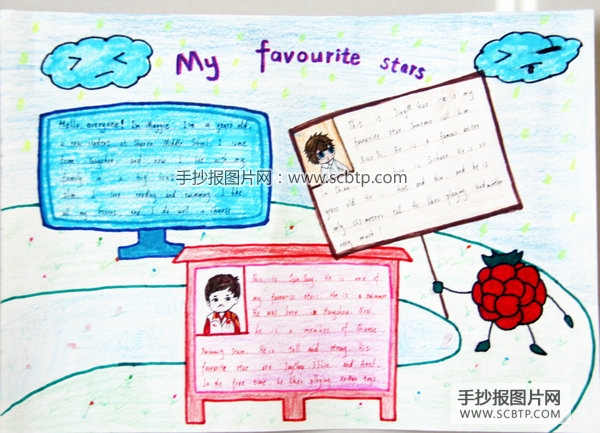 My favourite stars
Hello, everyone! I'm Maggie. I'm years old,
a new student at Middle School. I come
from Yangzhou, and now I live with my
family in a big
slim. I love reading and swimming. I like
all my lessons and I do well in Chinese
This is He is my
favourite star. Someone call him
He is a famous writer
in China. He is
years old. He is and thin and he is
only 155 metres tall. He likes playing badminton
very much!
手抄报图片网:www.scbtp.com
This is Sun Yang. He is one of
my favourite stars. He is a swimmer
He was born in Hangzhou. Now,
he is a member of Chinese
Swimming Team. He is tall and strong. His
favourite star are JayChou, JJLin and
In his free time, he likes playing toys.
手抄报图片网
WWW.SCBTP.COM